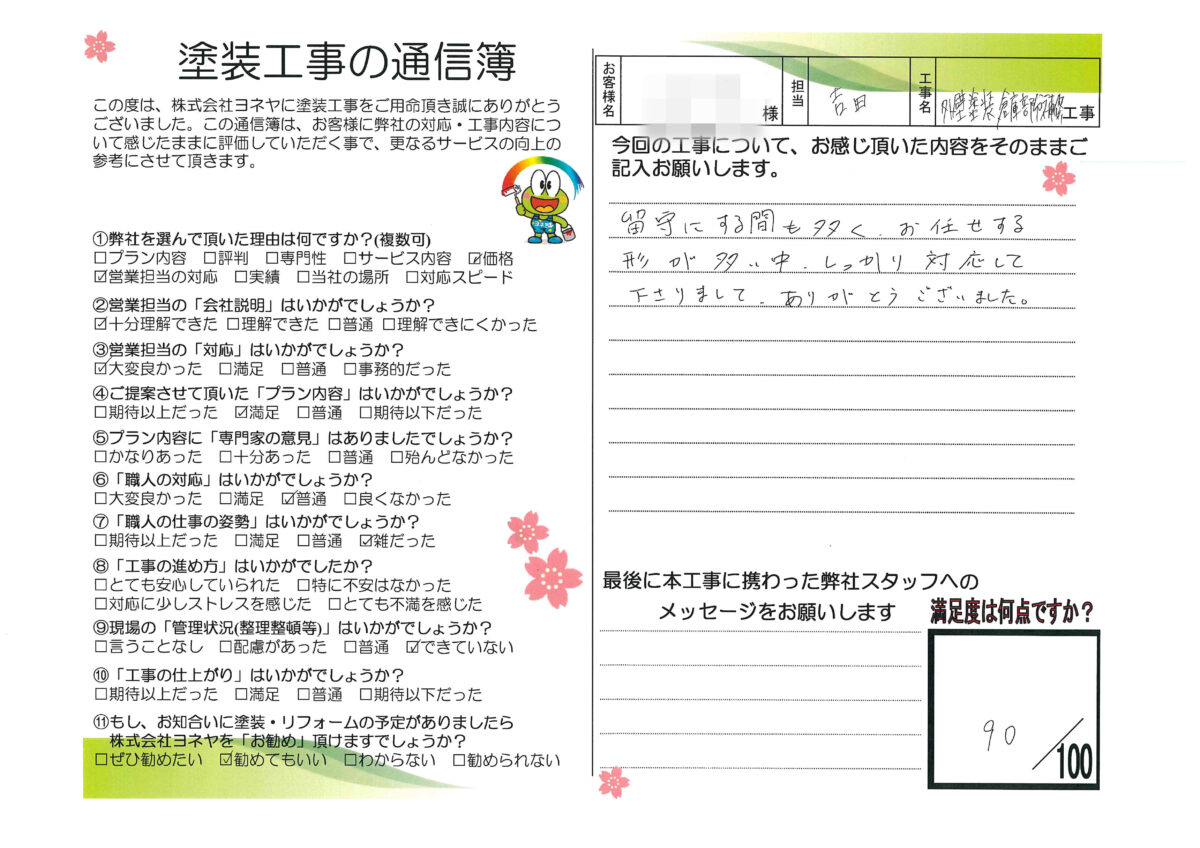 塗装工事の通信簿
この度は、株式会社ヨネヤに塗装工事をご用命頂き誠にありがとう
ございました。この通信簿は、お客様に弊社の対応・工事内容につ
いて感じたままに評価していただく事で、更なるサービスの向上の
参考にさせて頂きます。
①弊社を選んで頂いた理由は何ですか？(複数可)
☐プラン内容 ☐評判 ☐専門性 ☐サービス内容 ☑価格
☑営業担当の対応 ☐実績 ☐当社の場所 ☐対応スピード
②営業担当の「会社説明」はいかがでしょうか？
☑十分理解できた ☐理解できた ☐普通 ☐理解できにくかった
③営業担当の「対応」はいかがでしょうか？
☑大変良かった ☐満足 ☐普通 ☐事務的だった
④ご提案させて頂いた「プラン内容」はいかがでしょうか？
☐期待以上だった ☑満足 ☐普通 ☐期待以下だった
⑤プラン内容に「専門家の意見」はありましたでしょうか？
☐かなりあった ☐十分あった ☐普通 ☐殆んどなかった
⑥「職人の対応」はいかがでしょうか？
☐大変良かった ☐満足 ☑普通 ☐良くなかった
⑦「職人の仕事の姿勢」はいかがでしょうか？
☐期待以上だった ☐満足 ☐普通 ☑雑だった
⑧「工事の進め方」はいかがでしたか？
☐とても安心していられた ☐特に不安はなかった
☐対応に少しストレスを感じた ☐とても不満を感じた
⑨現場の「管理状況(整理整頓等)」はいかがでしょうか？
☐言うことなし ☐配慮があった ☐普通 ☑できていない
⑩「工事の仕上がり」はいかがでしょうか？
☐期待以上だった ☐満足 ☐普通 ☐期待以下だった
⑪もし、お知合いに塗装・リフォームの予定がありましたら
株式会社ヨネヤを「お勧め」頂けますでしょうか？
☐ぜひ勧めたい ☑勧めてもいい ☐わからない ☐勧められない
お客様名 様 担当 吉田 工事名 外壁塗装 倉庫 工事
今回の工事について、お感じ頂いた内容をそのままご
記入お願いします。
留守にする間も多く、お任せする
形が多い中、しっかり対応して
下さりまして、ありがとうございました。
最後に本工事に携わった弊社スタッフへの
メッセージをお願いします
満足度は何点ですか？
90/100